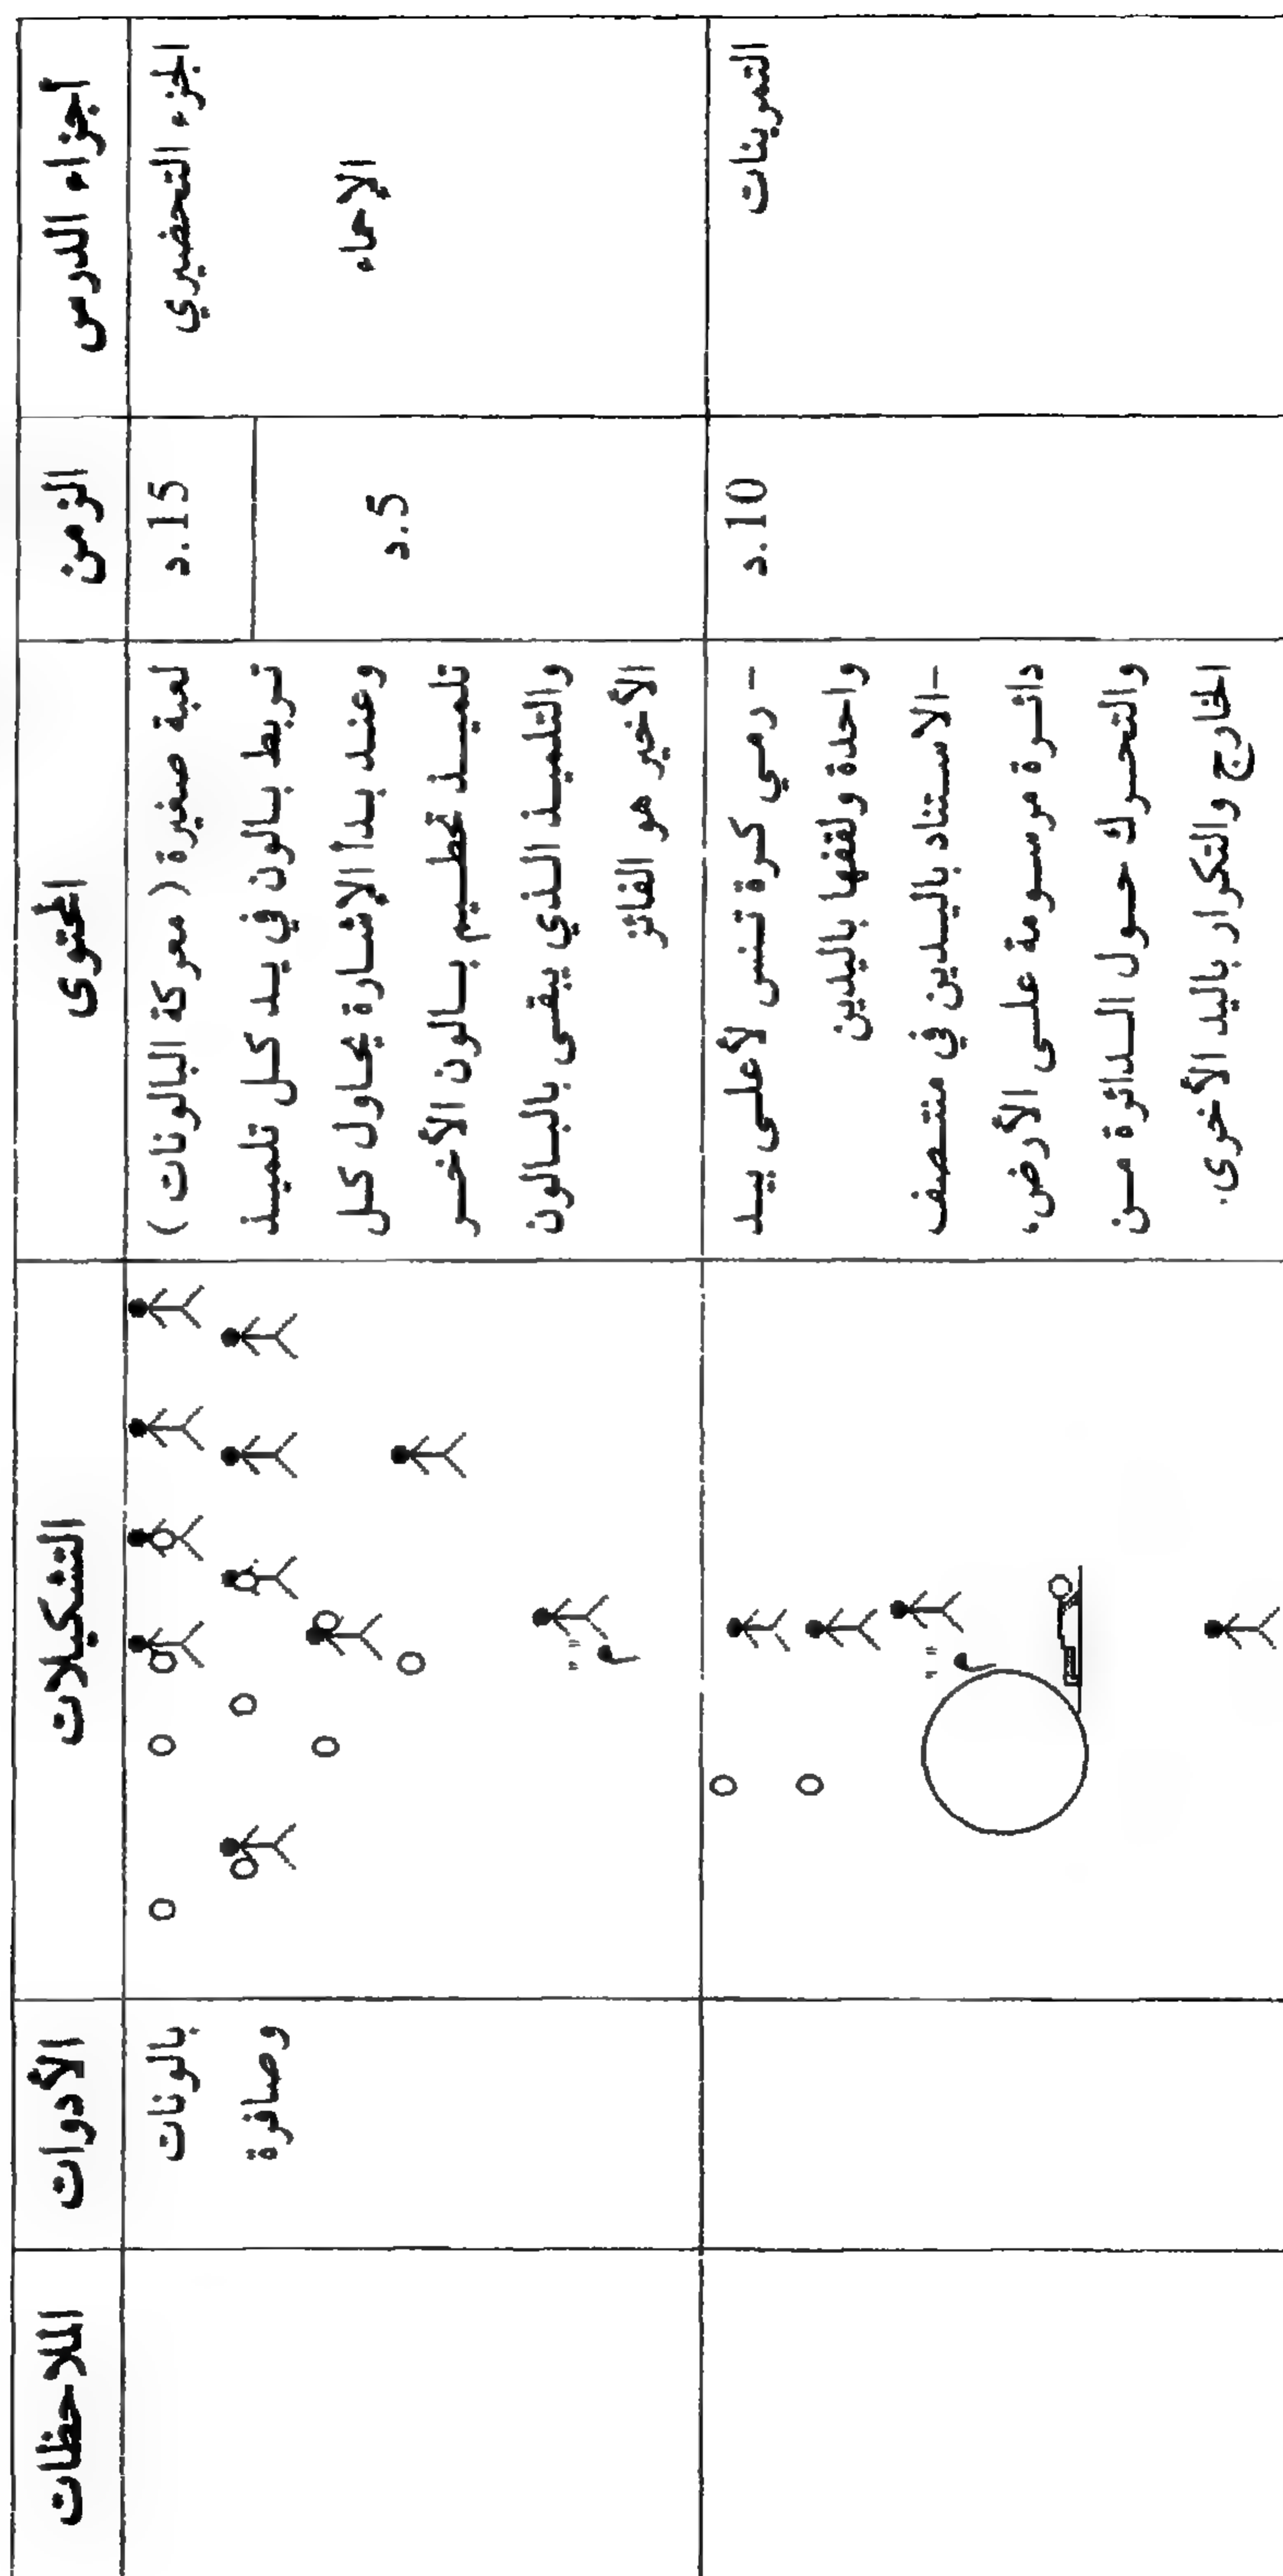 أجزاء الدرس
الزمن
المحتوى
التشكيلات
الأدوات
الملاحظات
الجزء التحضيري
الإحماء
15.د
5.د
لعبة صغيرة ( معركة البالونات )
تربط بالون في يد كل تلميذ
وعند بدأ الإشارة يحاول كل
تلميذ تحطيم بالون الأخر
والتلميذ الذي يبقى بالبالون
الأخير هو الفائز
"م"
بالونات
وصافرة
التمرينات
10.د
- رمي كرة تنس لأعلى بيد
واحدة ولقفها باليدين
-الاستناد باليدين في منتصف
دائرة مرسومة على الأرض،
والتحرك حول الدائرة من
الخارج والتكرار باليد الأخرى.
"م"